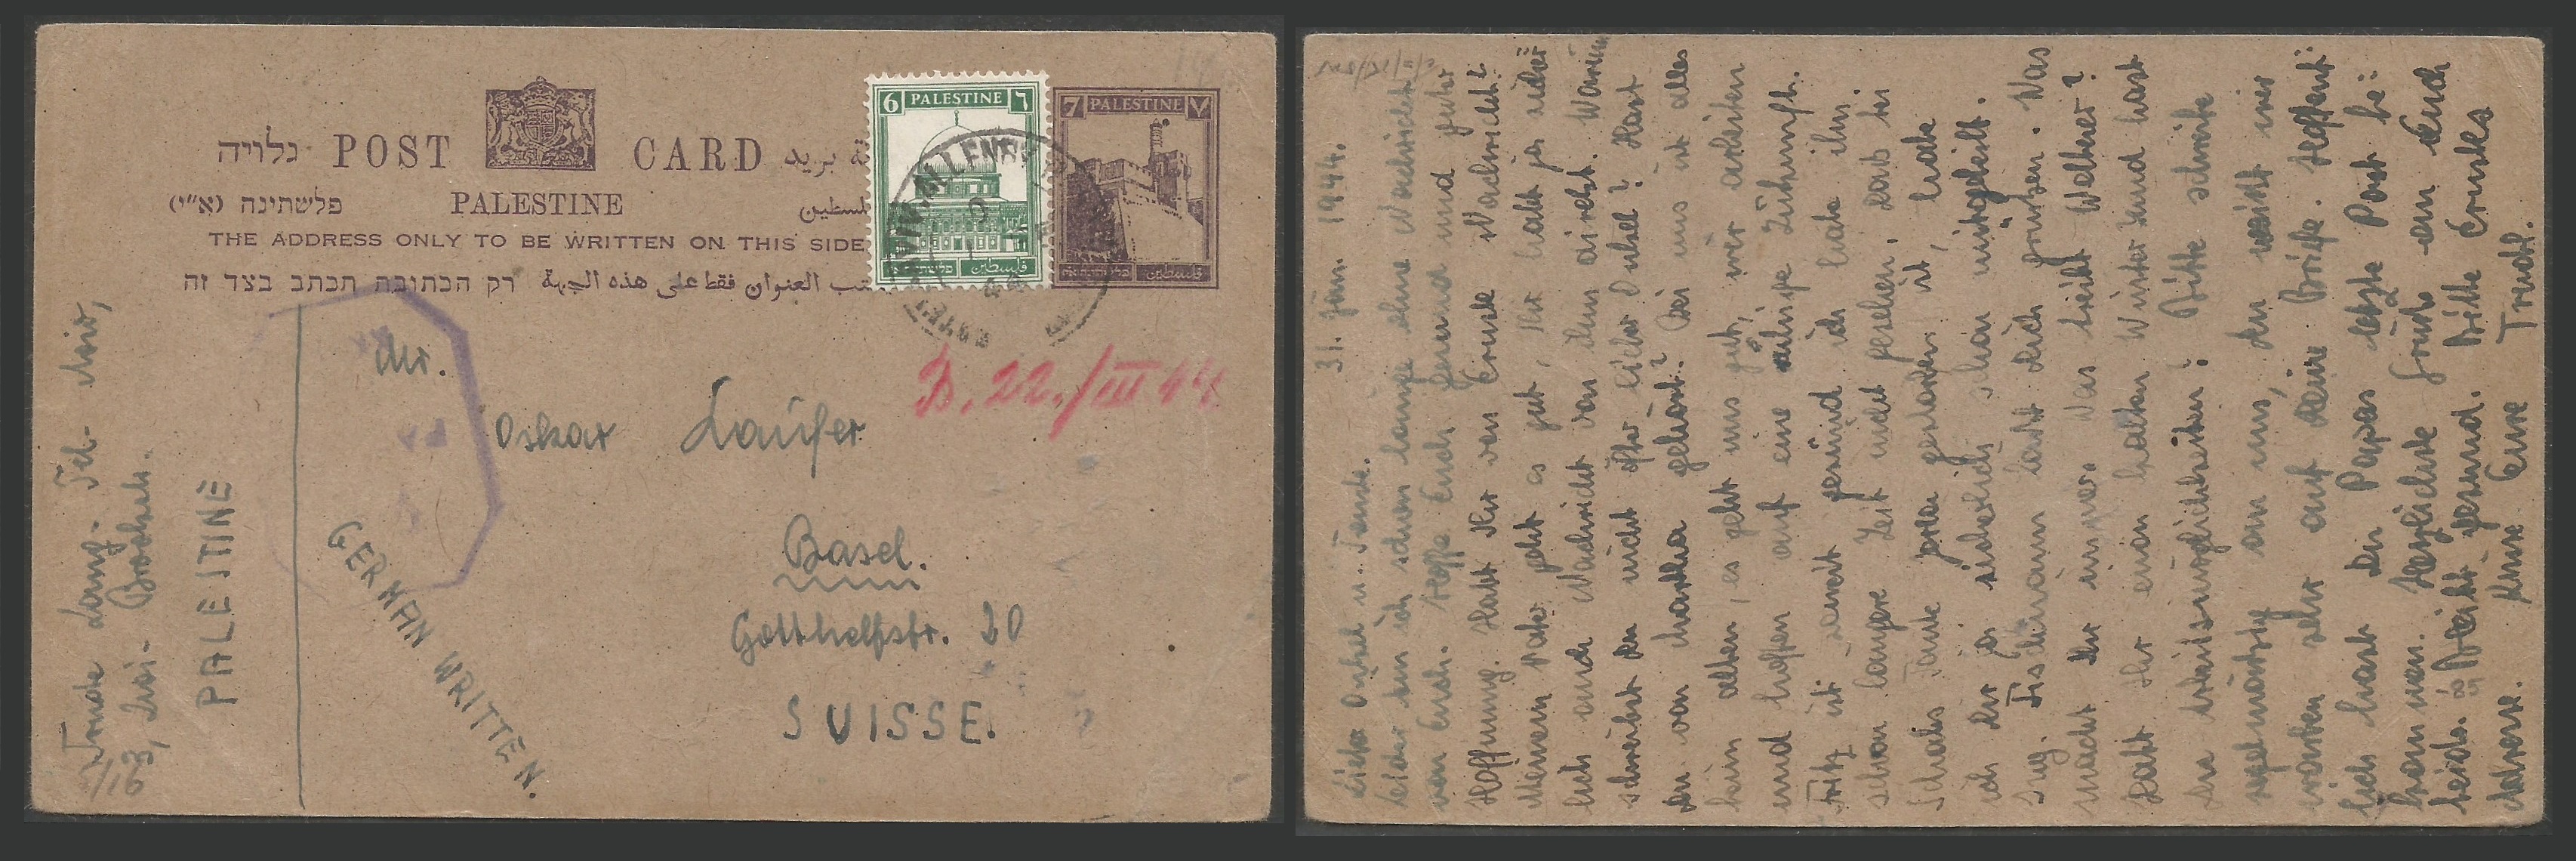 גלויה POST CARD بريد
פלשתינה (א״י) PALESTINE فلسطين
THE ADDRESS ONLY TO BE WRITTEN ON THIS SIDE
רק הכתובה תכתב בצד זה العنوان فقط على هذه الجهة
6 PALESTINE ٦
فلسطين
7 PALESTINE ٧
فلسطين
ALLENBY
Mr.
Oskar Laufer
Basel.
Gotthelfstr. 20
SUISSE.
B. 22./III 44
GERMAN WRITTEN.
Trude Lang. Tel-
PALEITINE
31. Jän. 1944.
Lieber Onkel u. Tante.
Leider bin ich schon lange ohne Nachricht
von Euch. Hoffe Euch gesund und guter
Hoffnung. Habt Ihr von Ernst Nachricht?
Meinem Vater geht es gut, Ihr habt ja sicher
lich auch Nachricht von ihm direkt. Warum
schreibst Du nicht öfter lieber Onkel? Hast
Du von Martha gehört? Bei uns ist alles
beim alten, es geht uns gut, wir arbeiten
und hoffen auf eine Zukunft.
Fritz ist soweit gesund ich habe ihn
schon längere Zeit nicht gesehen. Dass bei
Tante gestorben ist, habe
ich Dir ja sicherlich schon mitgeteilt.
lasst Dich grüssen. Was
macht Ihr immer. Was treibt Walther?
Habt Ihr einen kalten Winter und hast
Du Arbeitsmöglichkeiten? Bitte schreibe
regelmässig an uns, Du weisst wir
warten sehr auf Deine Briefe. Hoffent-
lich hast Du Papas letzte Post be-
kommen. Herzlichste Grüsse an Euch
beide. Bleibt gesund. Bitte Ernstes
Adresse. Eure Trudl.